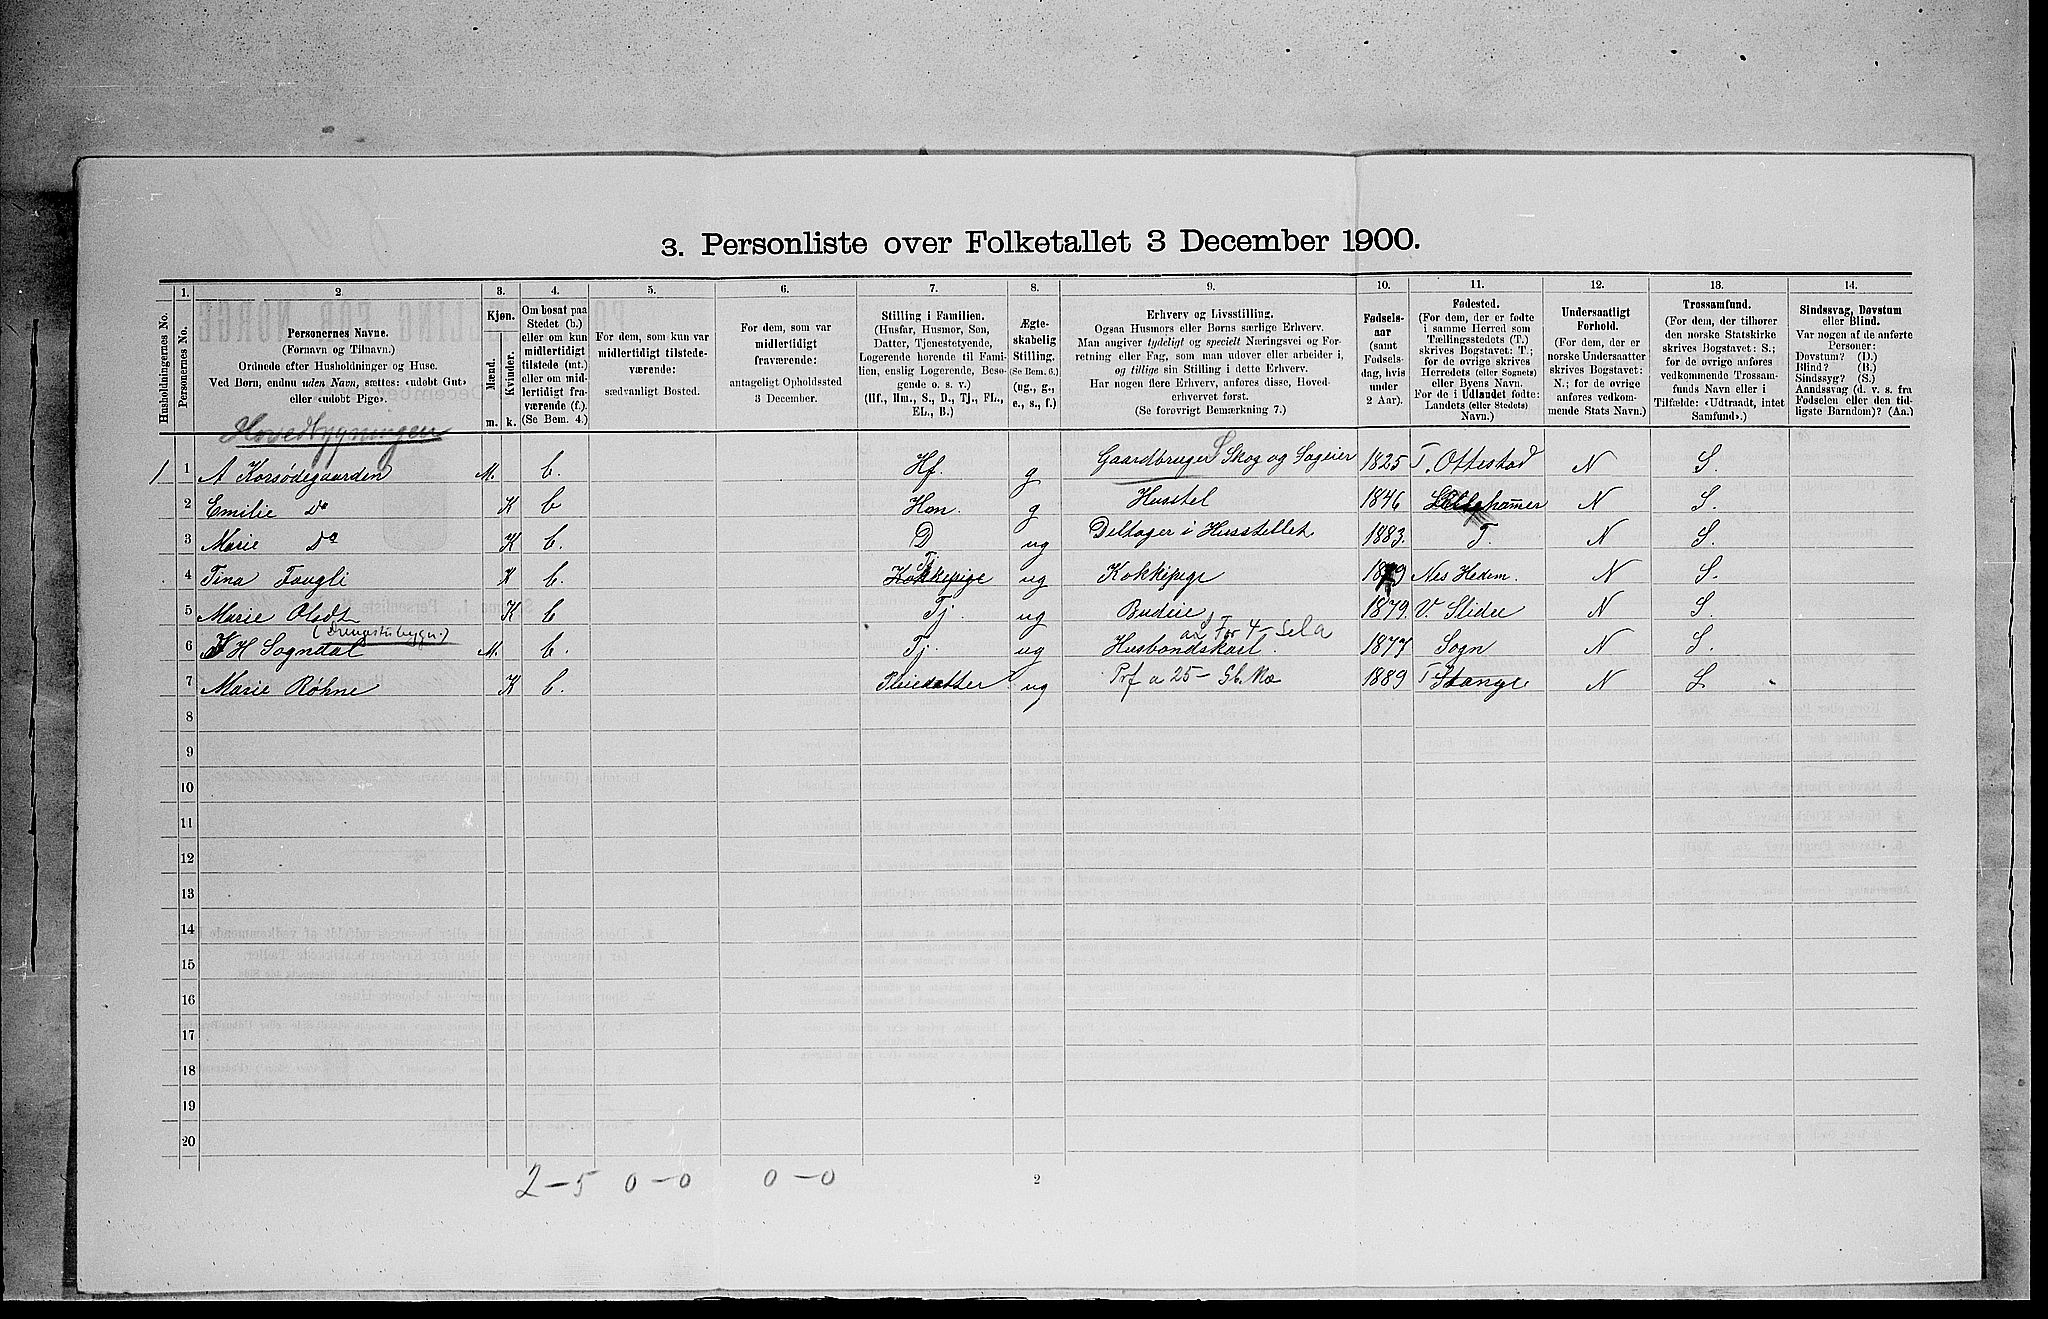 3. Personliste over Folketallet 3 December 1900.
Husholdningernes No.
1.
Personernes No.
2.
Personernes Navne.
(Fornavn og Tilnavn.)
Ordnede efter Husholdninger og Huse.
Ved Børn, endnu uden Navn, sættes: «udøbt Gut»
eller «udøbt Pige».
3.
Kjøn.
Mænd.
Kvinder.
m. k.
4.
Om bosat paa
Stedet (b.)
eller om kun
midlertidigt
tilstede (mt.)
eller om mid-
lertidigt fra-
værende (f.).
(Se Bem. 4.)
5.
For dem, som kun var
midlertidigt tilstede-
værende:
sædvanligt Bosted.
6.
For dem, som var
midlertidigt
fraværende:
antageligt Opholdssted
3 December.
7.
Stilling i Familien.
(Husfar, Husmor, Søn,
Datter, Tjenestetyende,
Logerende hørende til Fami-
lien, enslig Logerende, Besø-
gende o. s. v.)
(Hf., Hm., S., D., Tj., FL.,
EL., B.)
8.
Ægte-
skabelig
Stilling.
(Se Bem. 6.)
(ug., g.,
e., s., f.)
9.
Erhverv og Livsstilling.
Ogsaa Husmors eller Børns særlige Erhverv.
Man angiver tydeligt og specielt Næringsvei og For-
retning eller Fag, som man udøver eller arbeider i,
og tillige sin Stilling i dette Erhverv.
Har nogen flere Erhverv, anføres disse, Hoved-
erhvervet først.
(Se forøvrigt Bemærkning 7.)
10.
Fødsels-
aar
(samt
Fødsels-
dag, hvis
under
2 Aar).
11.
Fødested.
(For dem, der er fødte
i samme Herred som
Tællingsstedets (T.)
skrives Bogstavet: T.;
for de øvrige skrives
Herredets (eller Sognets)
eller Byens Navn.
For de i Udlandet fødte:
Landets (eller Stedets)
Navn.)
12.
Undersaatligt
Forhold.
(For dem, der er
norske Undersaatter
skrives Bogstavet:
N.; for de øvrige
anføres vedkom-
mende Stats Navn.)
13.
Trossamfund.
(For dem, der tilhører
den norske Statskirke
skrives Bogstavet: S.;
for de øvrige anføres
vedkommende Trossam-
funds Navn eller i
Tilfælde: «Udtraadt, intet
Samfund.»)
14.
Sindssvag, Døvstum
eller Blind.
Var nogen af de anførte
Personer:
Døvstum? (D.)
Blind? (B.)
Sindssyg? (S.)
Aandssvag (d. v. s. fra
Fødselen eller den tid-
ligste Barndom)? (Aa.)
Hovedbygningen
1 1 A Korsødegaarden M. b. Hf. g Gaardbruger Skog og Sageier 1825 T. Ottestad N S.
2 Emilie Do K b Hon. g Husstel 1846 Lillehammer N S.
3 Marie Do K b. D ug Deltager i Husstellet 1883. T. N S.
4 Tina Faugli K b. Tj Kokkepige ug Kokkepige 1879 Nes Hedem. N S.
5 Marie Olsdt K b Tj. ug Budeie 1879. V. Slidre N S.
(Drengstubygn.)
6 H Sogndal M. b. Tj. ug Husbondskarl. 1877 Sogn N S.
7 Marie Røhne K b. Pleiedatter ug Prf a 25 – Gb. Ma 1889 T Stange N S.
8
9
10
11
12
13
14
15
16
17
18
19
20
2 – 5 0 – 0 0 – 0
2